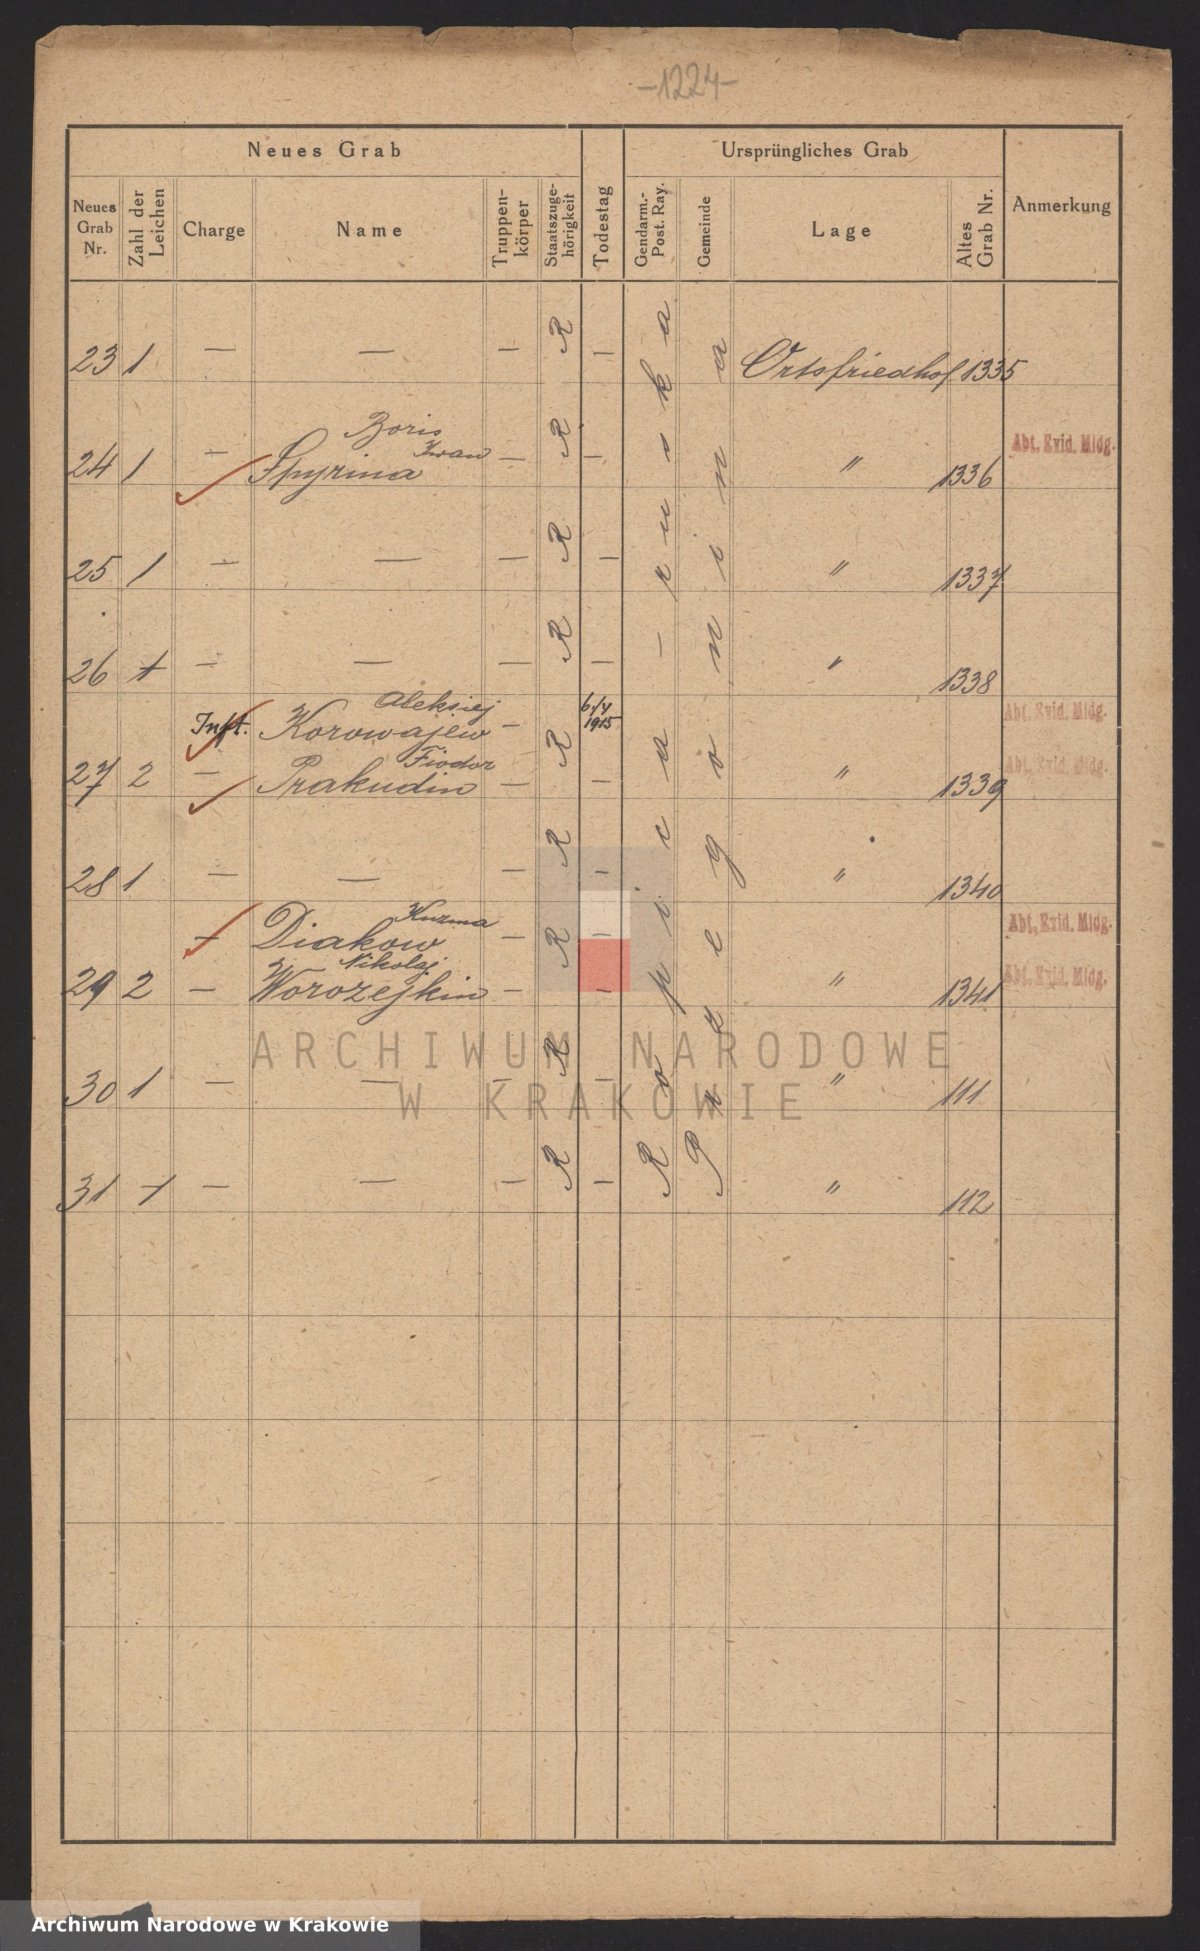 -1224-
Neues Grab
Ursprüngliches Grab
Neues Grab Nr.
Zahl der Leichen
Charge
Name
Truppen-körper
Staatszuge-hörigkeit
Todestag
Gendarm.-Post. Ray.
Gemeinde
Lage
Altes Grab Nr.
Anmerkung
23 1 — — — R — Ortsfriedhof 1335
Boris
Iwan
24 1 — Spyrina — R — " 1336 Abt. Evid. Mldg.
25 1 — — — R — " 1337
26 1 — — — R — " 1338
Aleksiej
Inft. Korowajew — 6/4 1915 Abt. Evid. Mldg.
Fiodor
27 2 — Prakudin — R — " 1339 Abt. Evid. Mldg.
28 1 — — — R — " 1340
Kuzma
— Diakow — R — Abt. Evid. Mldg.
Nikolaj
29 2 — Worozejkin — — " 1341 Abt. Evid. Mldg.
30 1 — — — R — " 111
31 1 — — — R — " 112
Ropica - ruska
ARCHIWUM NARODOWE
W KRAKOWIE
Archiwum Narodowe w Krakowie